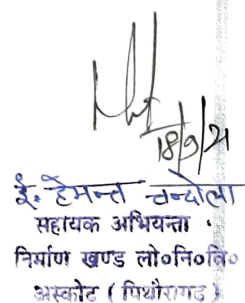 18/9/21
ई. हेमन्त चन्दोला
सहायक अभियन्ता
निर्माण खण्ड लो०नि०वि०
अस्कोट (पिथौरागढ़)